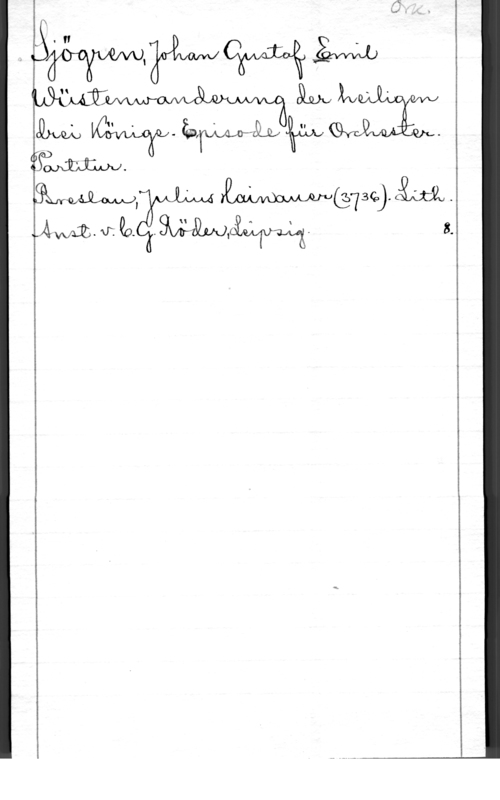 Ork.
Sjögren, Johan Gustaf Emil
Wüstenwanderung der heiligen
drei Könige. Episode für Orchester.
Partitur.
Breslau, Julius Hainauer (3736). Lith.
Anst. v. C. G. Röder, Leipzig. 8.